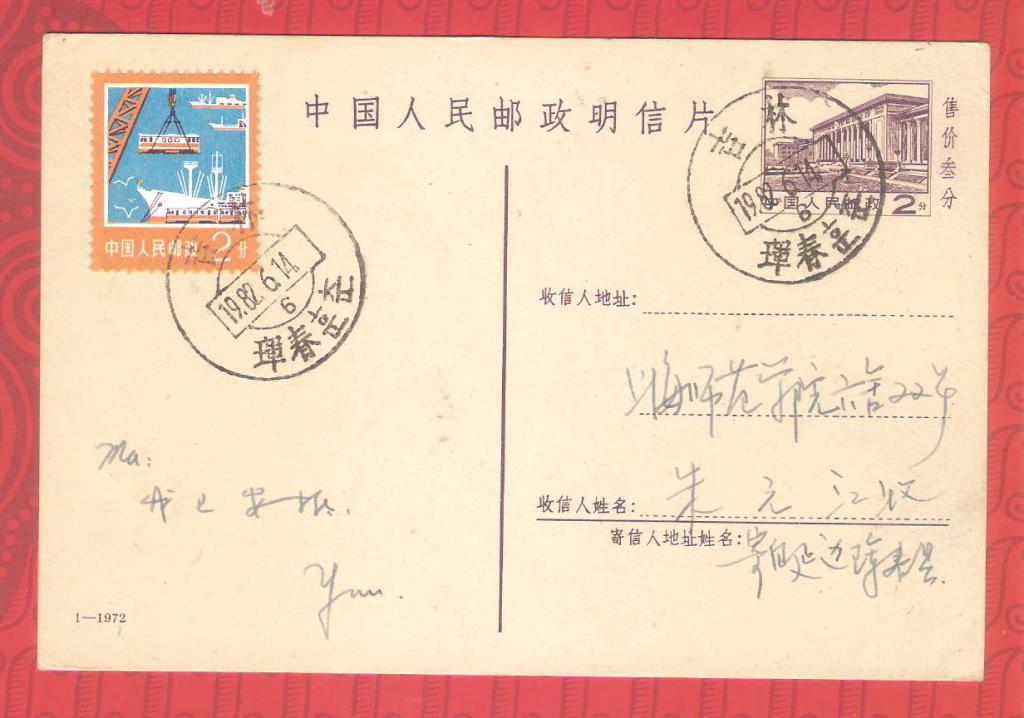 中国人民邮政明信片
售价叁分
中国人民邮政 2分
中国人民邮政 2分
吉林
1982.6.14.
6
珲春
吉林
1982.6.14.
6
珲春
收信人地址:
上海师范学院六舍224
收信人姓名: 朱元江收
寄信人地址姓名: 寄自延边珲春县
Ma:
我已安抵.
Yuan.
1—1972